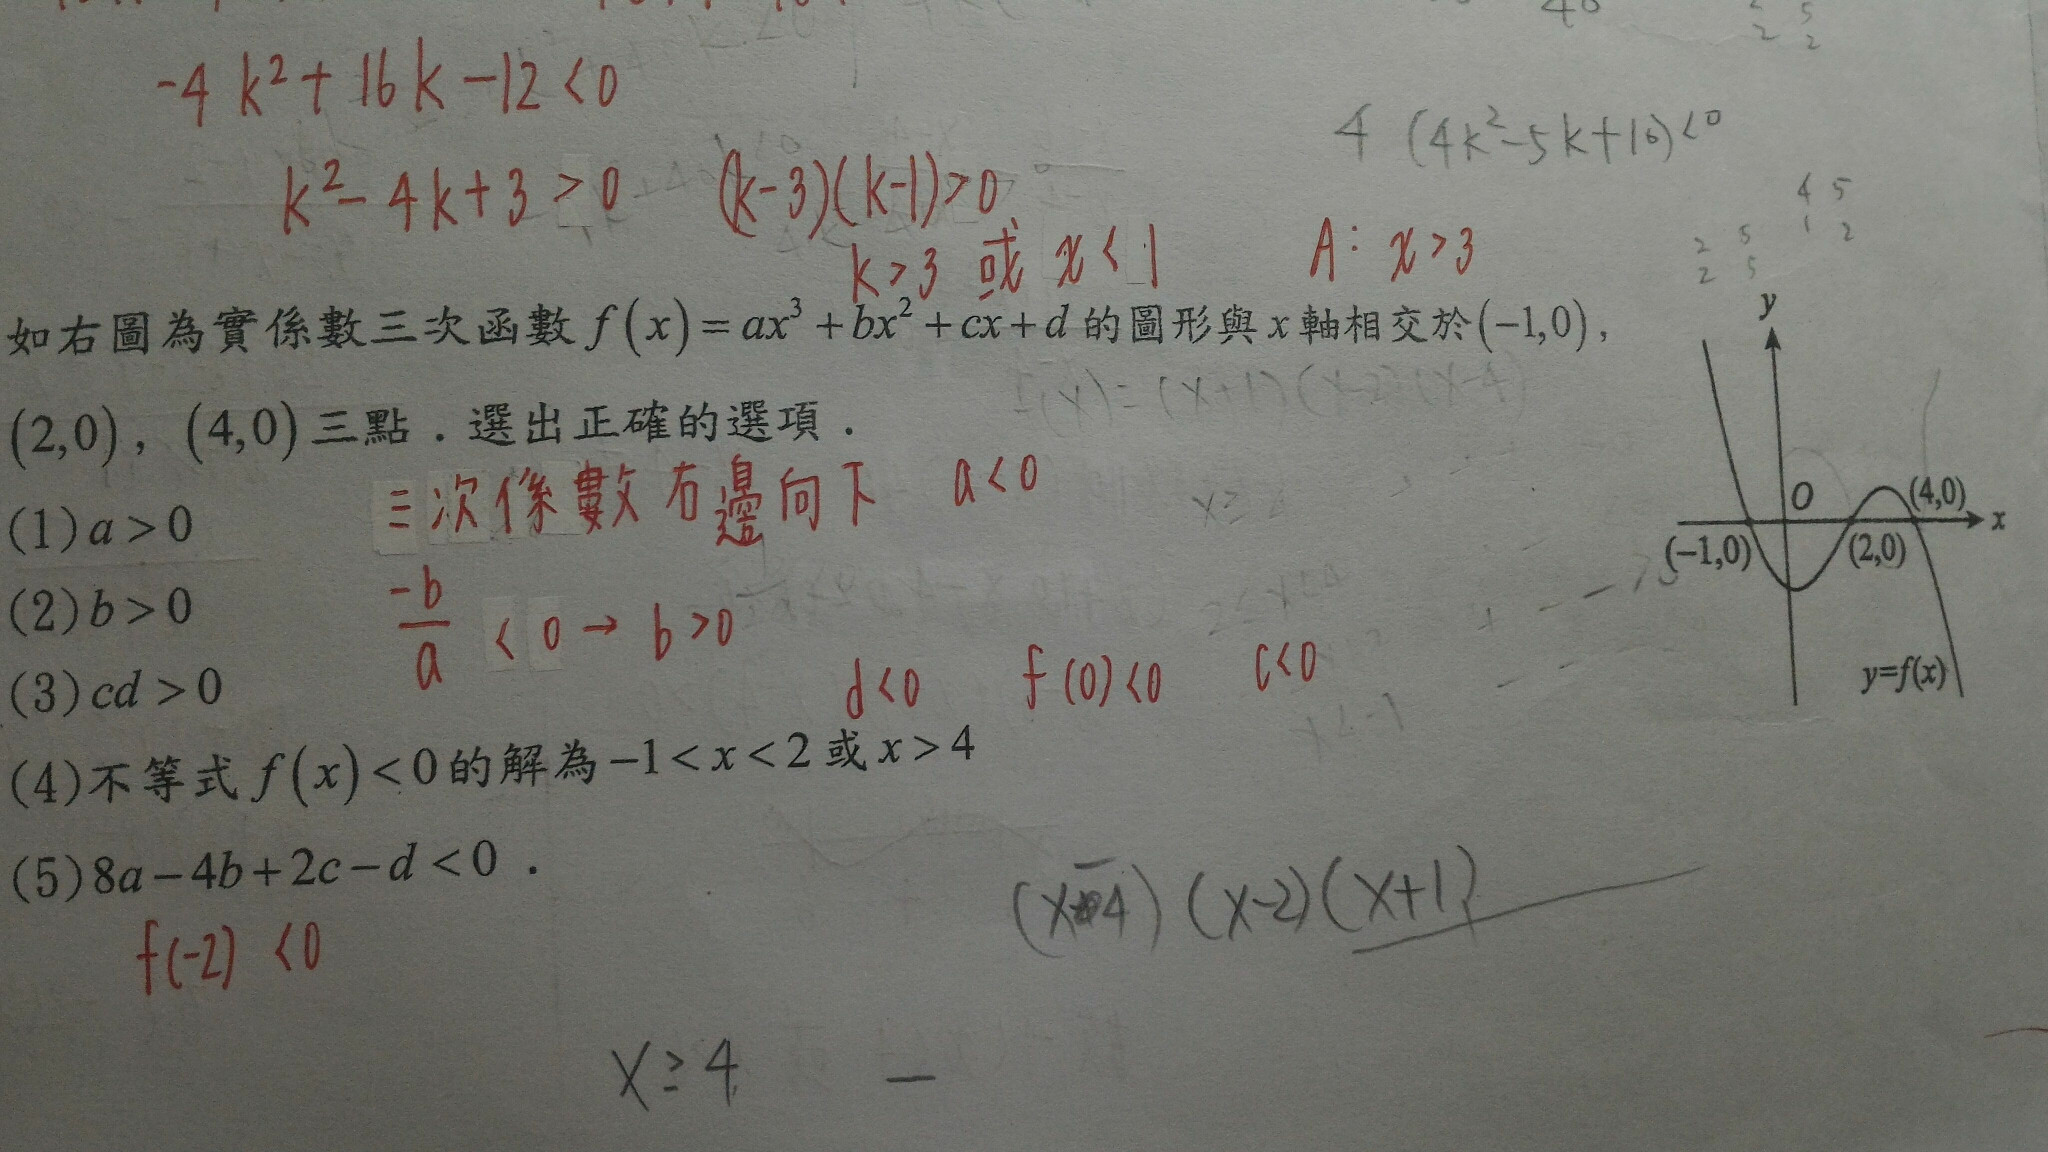 -4k²+16k-12<0
4(4k²-5k+16)<0
k²-4k+3>0 (k-3)(k-1)>0
4 5
1 2
2 5
2 5
k>3 或 x<1 A: x>3
如右圖為實係數三次函數 f(x)=ax³+bx²+cx+d 的圖形與 x 軸相交於(−1,0),
f(x)=(x+1)(x-2)(x-4)
(2,0), (4,0)三點.選出正確的選項.
三次係數右邊向下 a<0
(1) a>0
-b/a <0 → b>0
(2) b>0
d<0 f(0)<0 c<0
(3) cd>0
(4) 不等式 f(x)<0 的解為 −1<x<2 或 x>4
(5) 8a−4b+2c−d<0.
f(-2) <0
(x-4)(x-2)(x+1)
x≥4 −
y
O
(4,0)
x
(−1,0)
(2,0)
y=f(x)